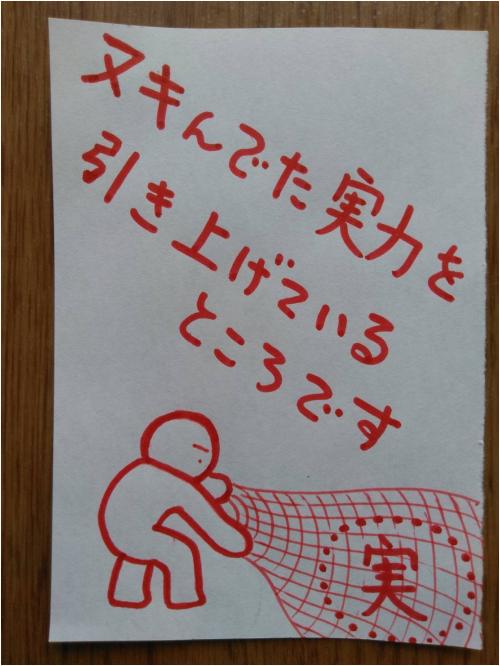 ヌキんでた実力を
引き上げている
ところです
実